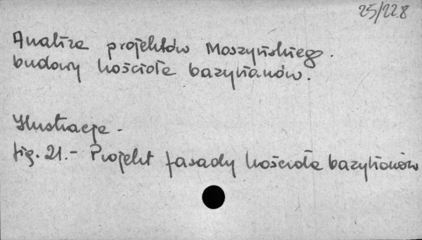 25/228
Analiza projektów Moszyńskiego.
budowy kościoła bazylianów.
Ilustracje.
fig. 21.- Projekt fasady kościoła bazylianów